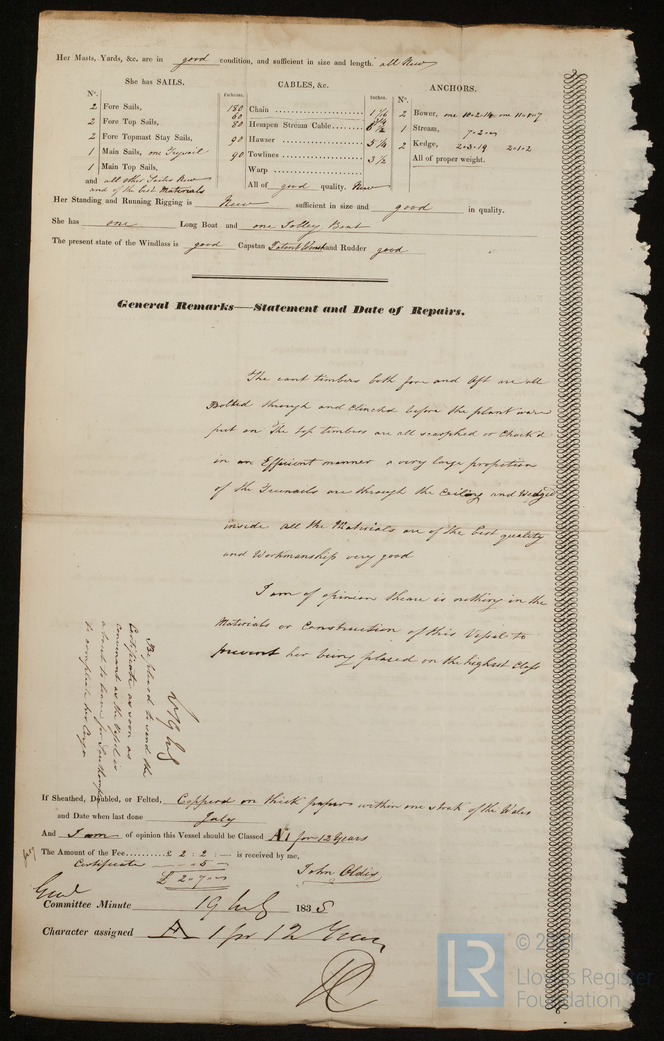 Her Masts, Yards, &c. are in good condition, and sufficient in size and length. all New
She has SAILS.
CABLES, &c.
ANCHORS.
N°.
Fathoms.
Inches.
N°.
2 Fore Sails,
2 Fore Top Sails,
2 Fore Topmast Stay Sails,
1 Main Sails, one Trysail
1 Main Top Sails,
and all other Sails New
and of the best Materials
180 Chain 1 7/16
60 3/4
80 Hempen Stream Cable 6 1/2
90 Hawser 5 1/4
90 Towlines 3 1/2
Warp
All of good quality. New
2 Bower, one 10-2-14 one 11-0-7
1 Stream, 
2 Kedge, 2-3-19 2-1-2
All of proper weight.
Her Standing and Running Rigging is New sufficient in size and good in quality.
She has one Long Boat and one Jolley Boat
The present state of the Windlass is good Capstan Patent Winch and Rudder good
General Remarks—Statement and Date of Repairs.
The cant timbers both fore and Aft are all
Bolted through and clinched before the plank ware
put on The top timbers are all scarphed or Chock'd
in an Efficient manner a very large propotion
of the Treenails are through the Ceiling and Wedged
inside all the Materials are of the best quality
and Workmanship very good
I am of opinion theare is nothing in the
Materials or Construction of this Vessel to
prevent her being placed on the highest Class
Be pleased to send the
Certificate as soon as
convenient as the Vessel is
about to leave for
to complete her Cargo
If Sheathed, Doubled, or Felted, Copperd on thick paper within one strak of the Wales
and Date when last done July
And I am of opinion this Vessel should be Classed A 1 for 12 Years
The Amount of the Fee £ 2 : 2 : — is received by me,
Certificate 5
£ 2 - 7 -
John Oldis
Committee Minute 19 July 1835
Character assigned A 1 for 12 Years
LR
Lloyd's Register
Foundation